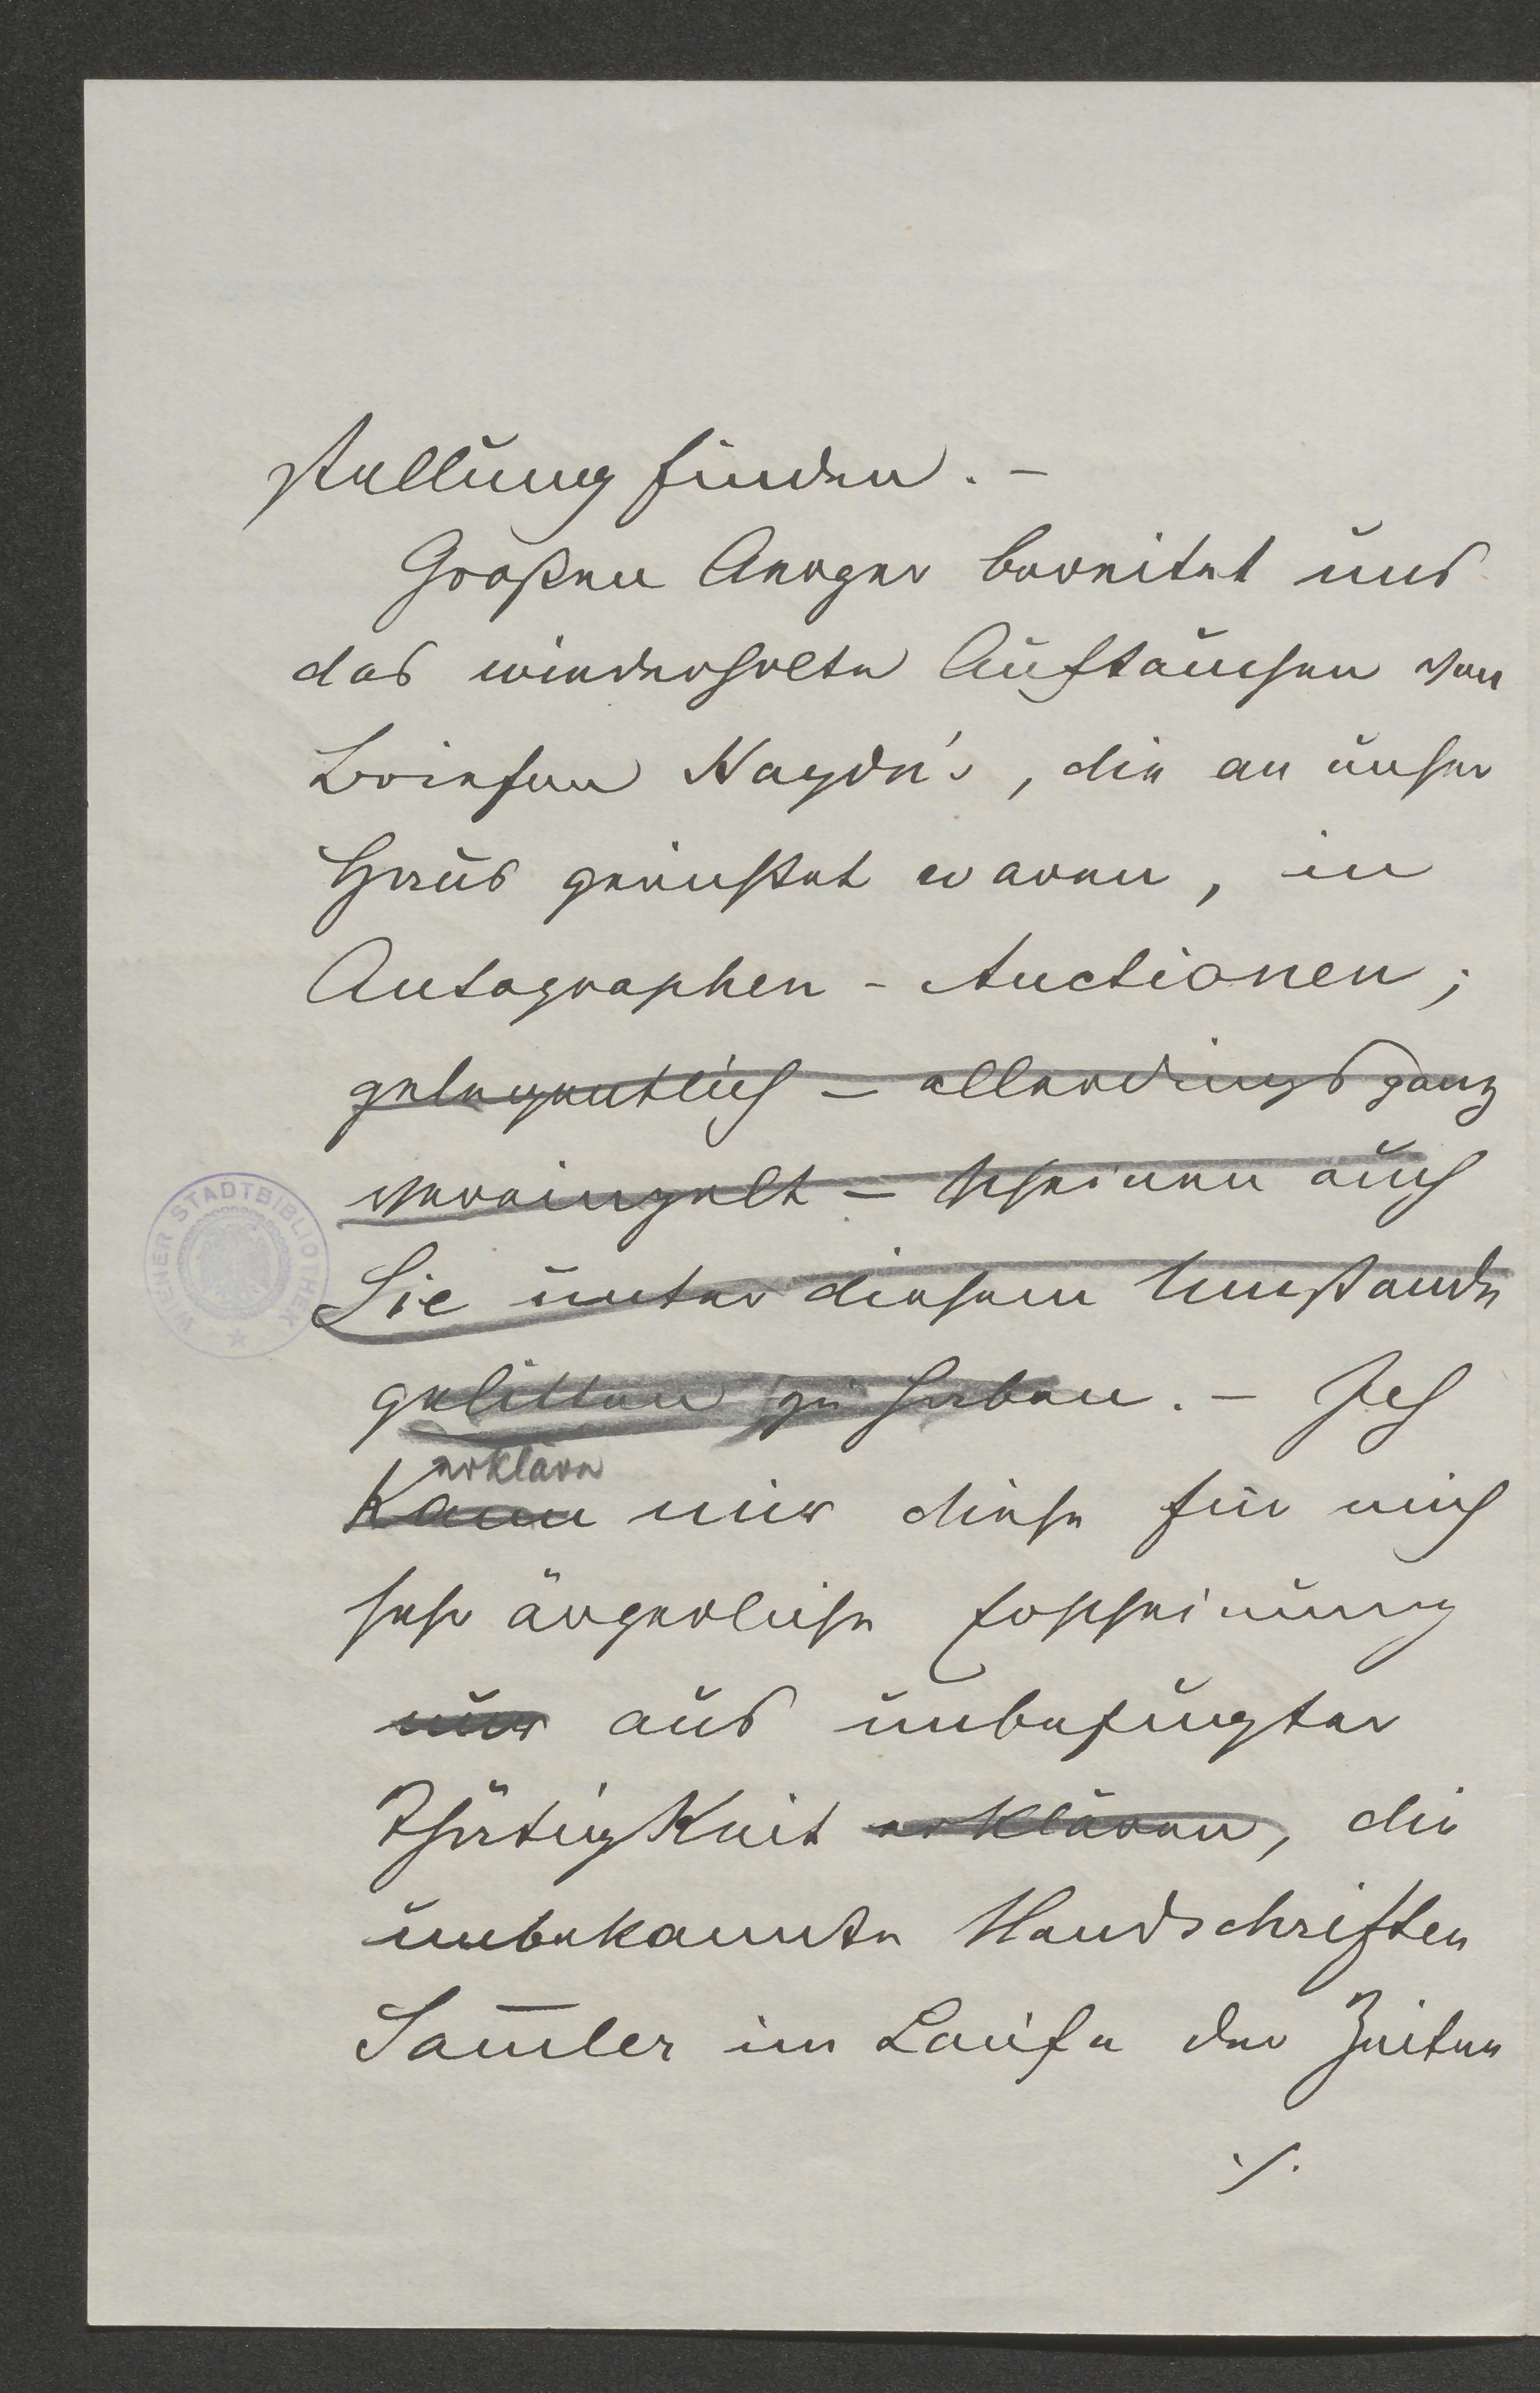 stellung finden. –
Großen Aerger bereitet uns
das wiederholte Auftauchen von
Briefen Haydn's, die an unser
Haus gerichtet waren, in
Autographen - Auctionen;
gelegentlich – allerdings ganz
vereinzelt – scheinen auch
Sie unter diesem Umstande
gelitten zu haben. – Ich
erkläre
kann mir diese für mich
sehr ärgerliche Erscheinung
nur aus unbefugter
Thätigkeit erklären, die
unbekannte Handschriften
Sam̅ler im Laufe der Zeiten
./.
WIENER STADTBIBLIOTHEK